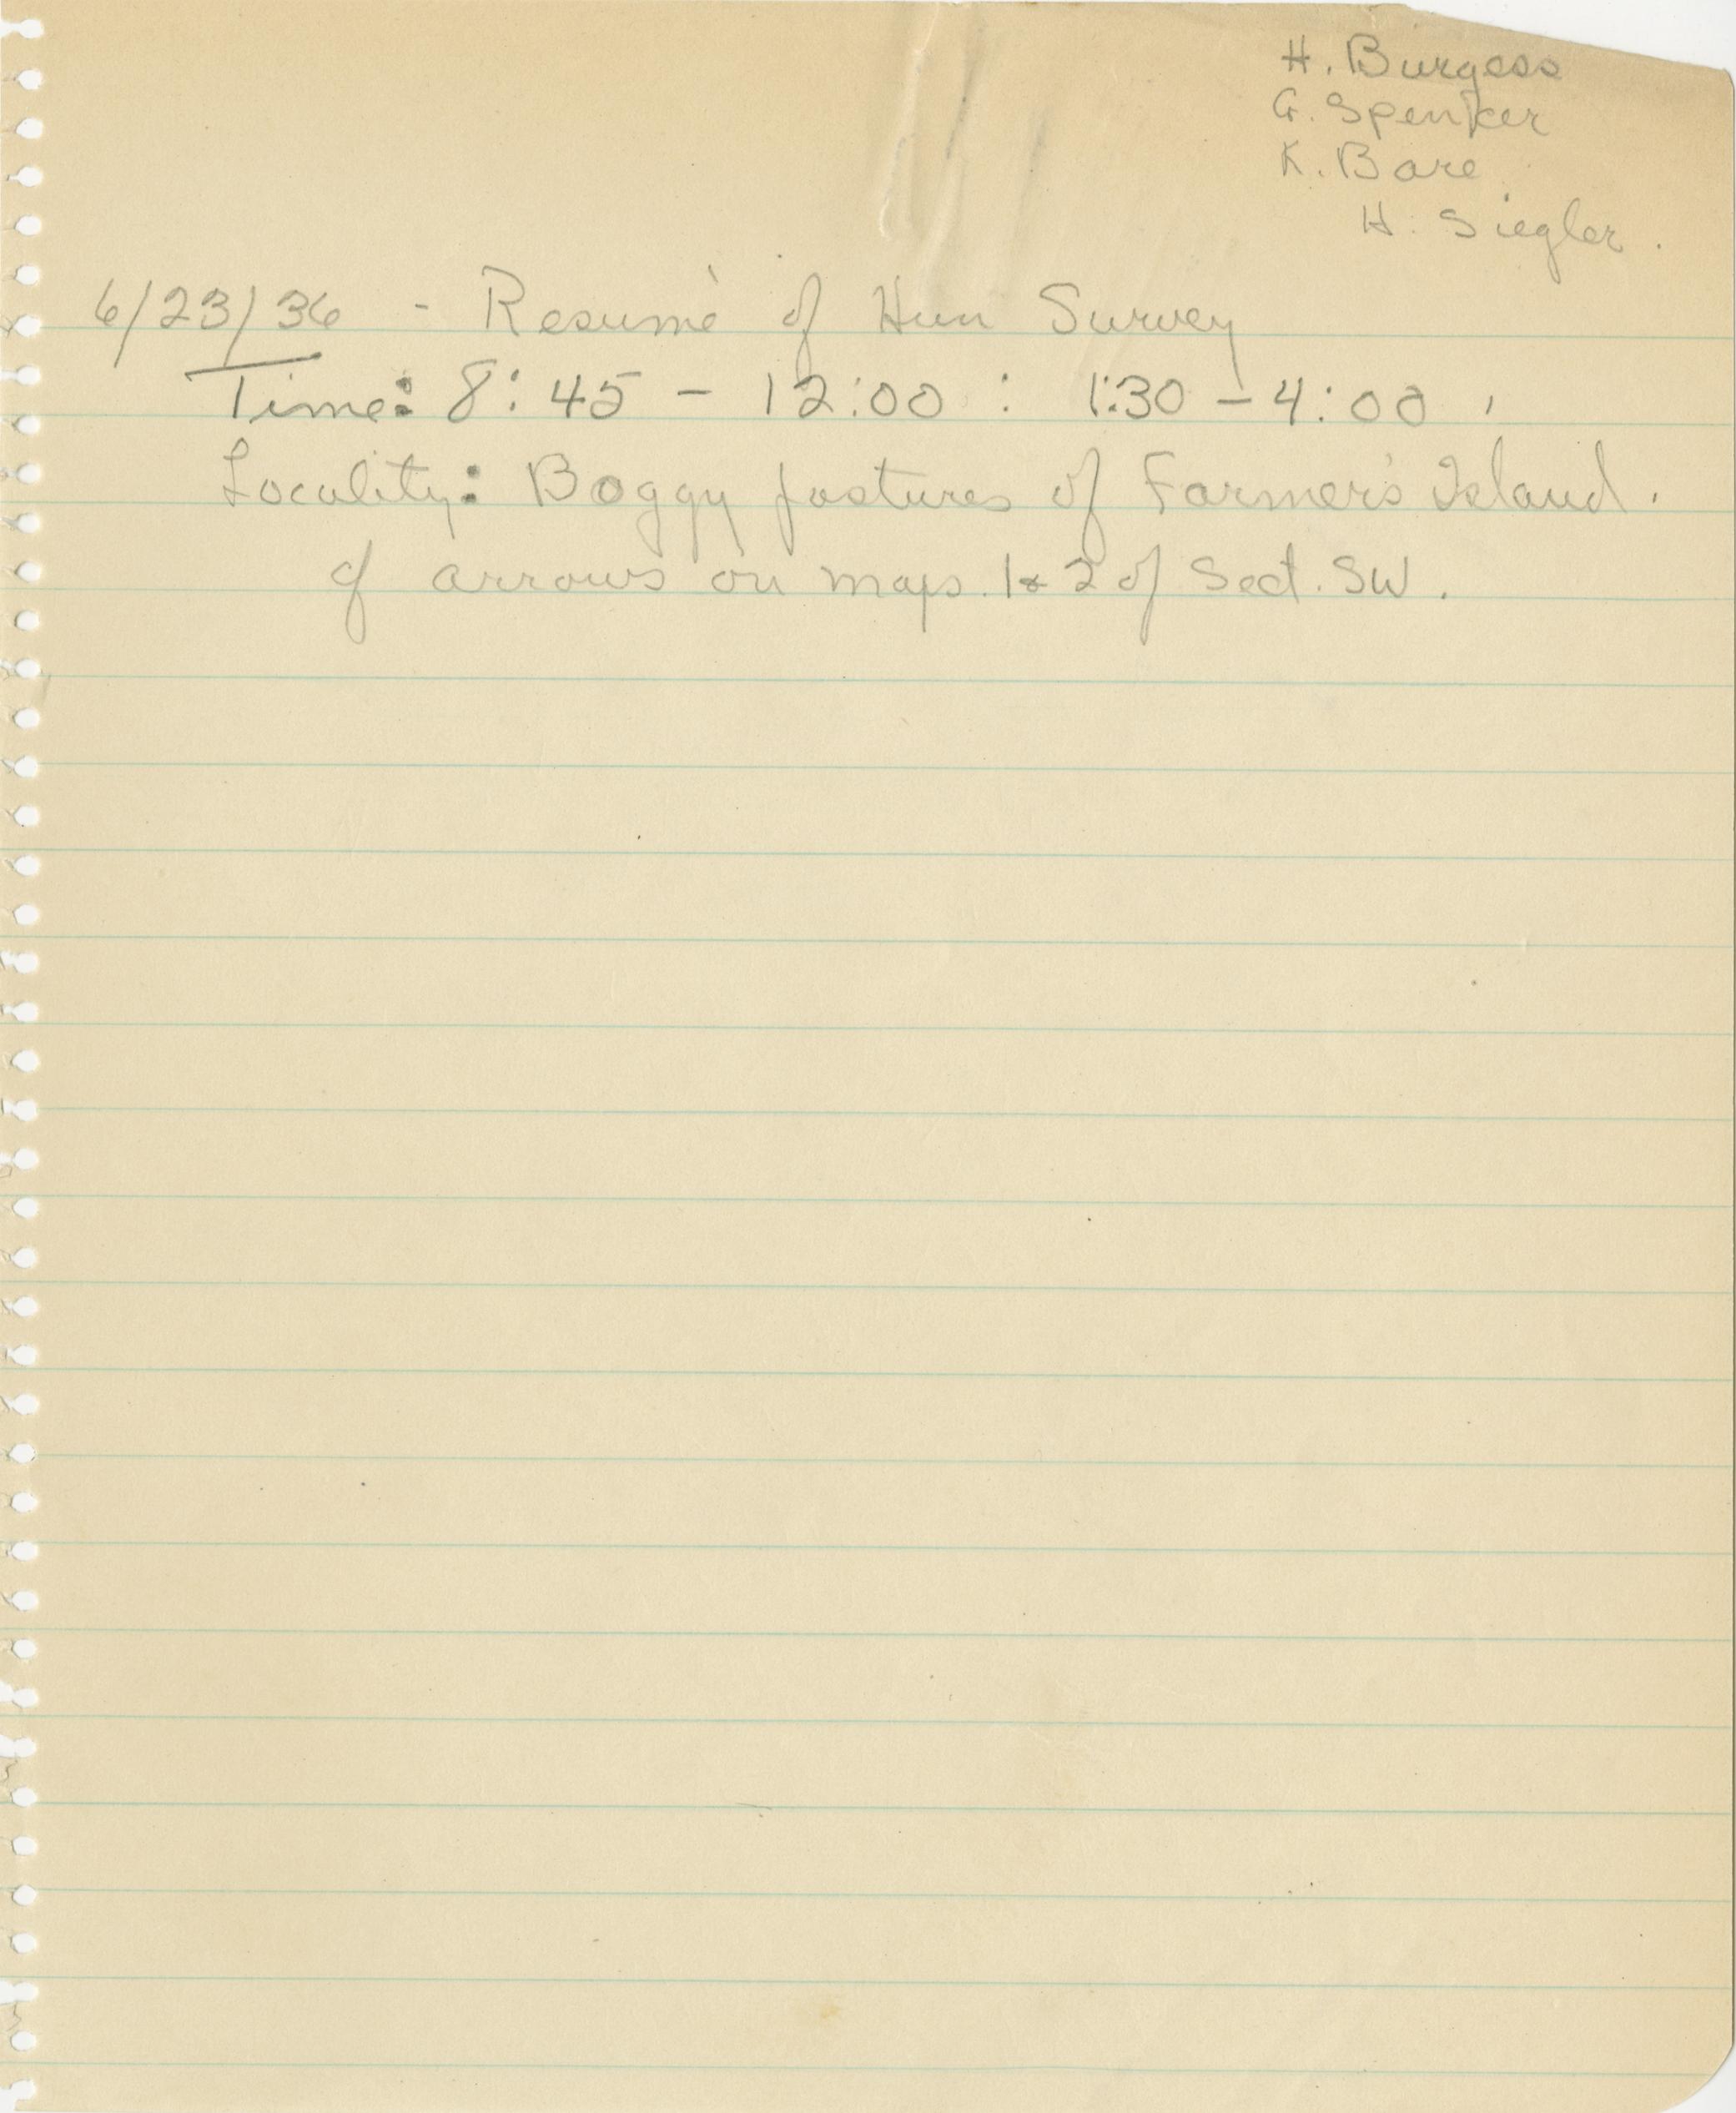 H. Burgess
G. Spenker
K. Bare
H. Siegler.
6/23/36 - Resumé of Hun Survey
Time: 8:45 - 12:00 : 1:30 - 4:00,
Locality: Boggy pastures of Farmer's Island.
of arrows on maps. 1 & 2 of Sect. SW.